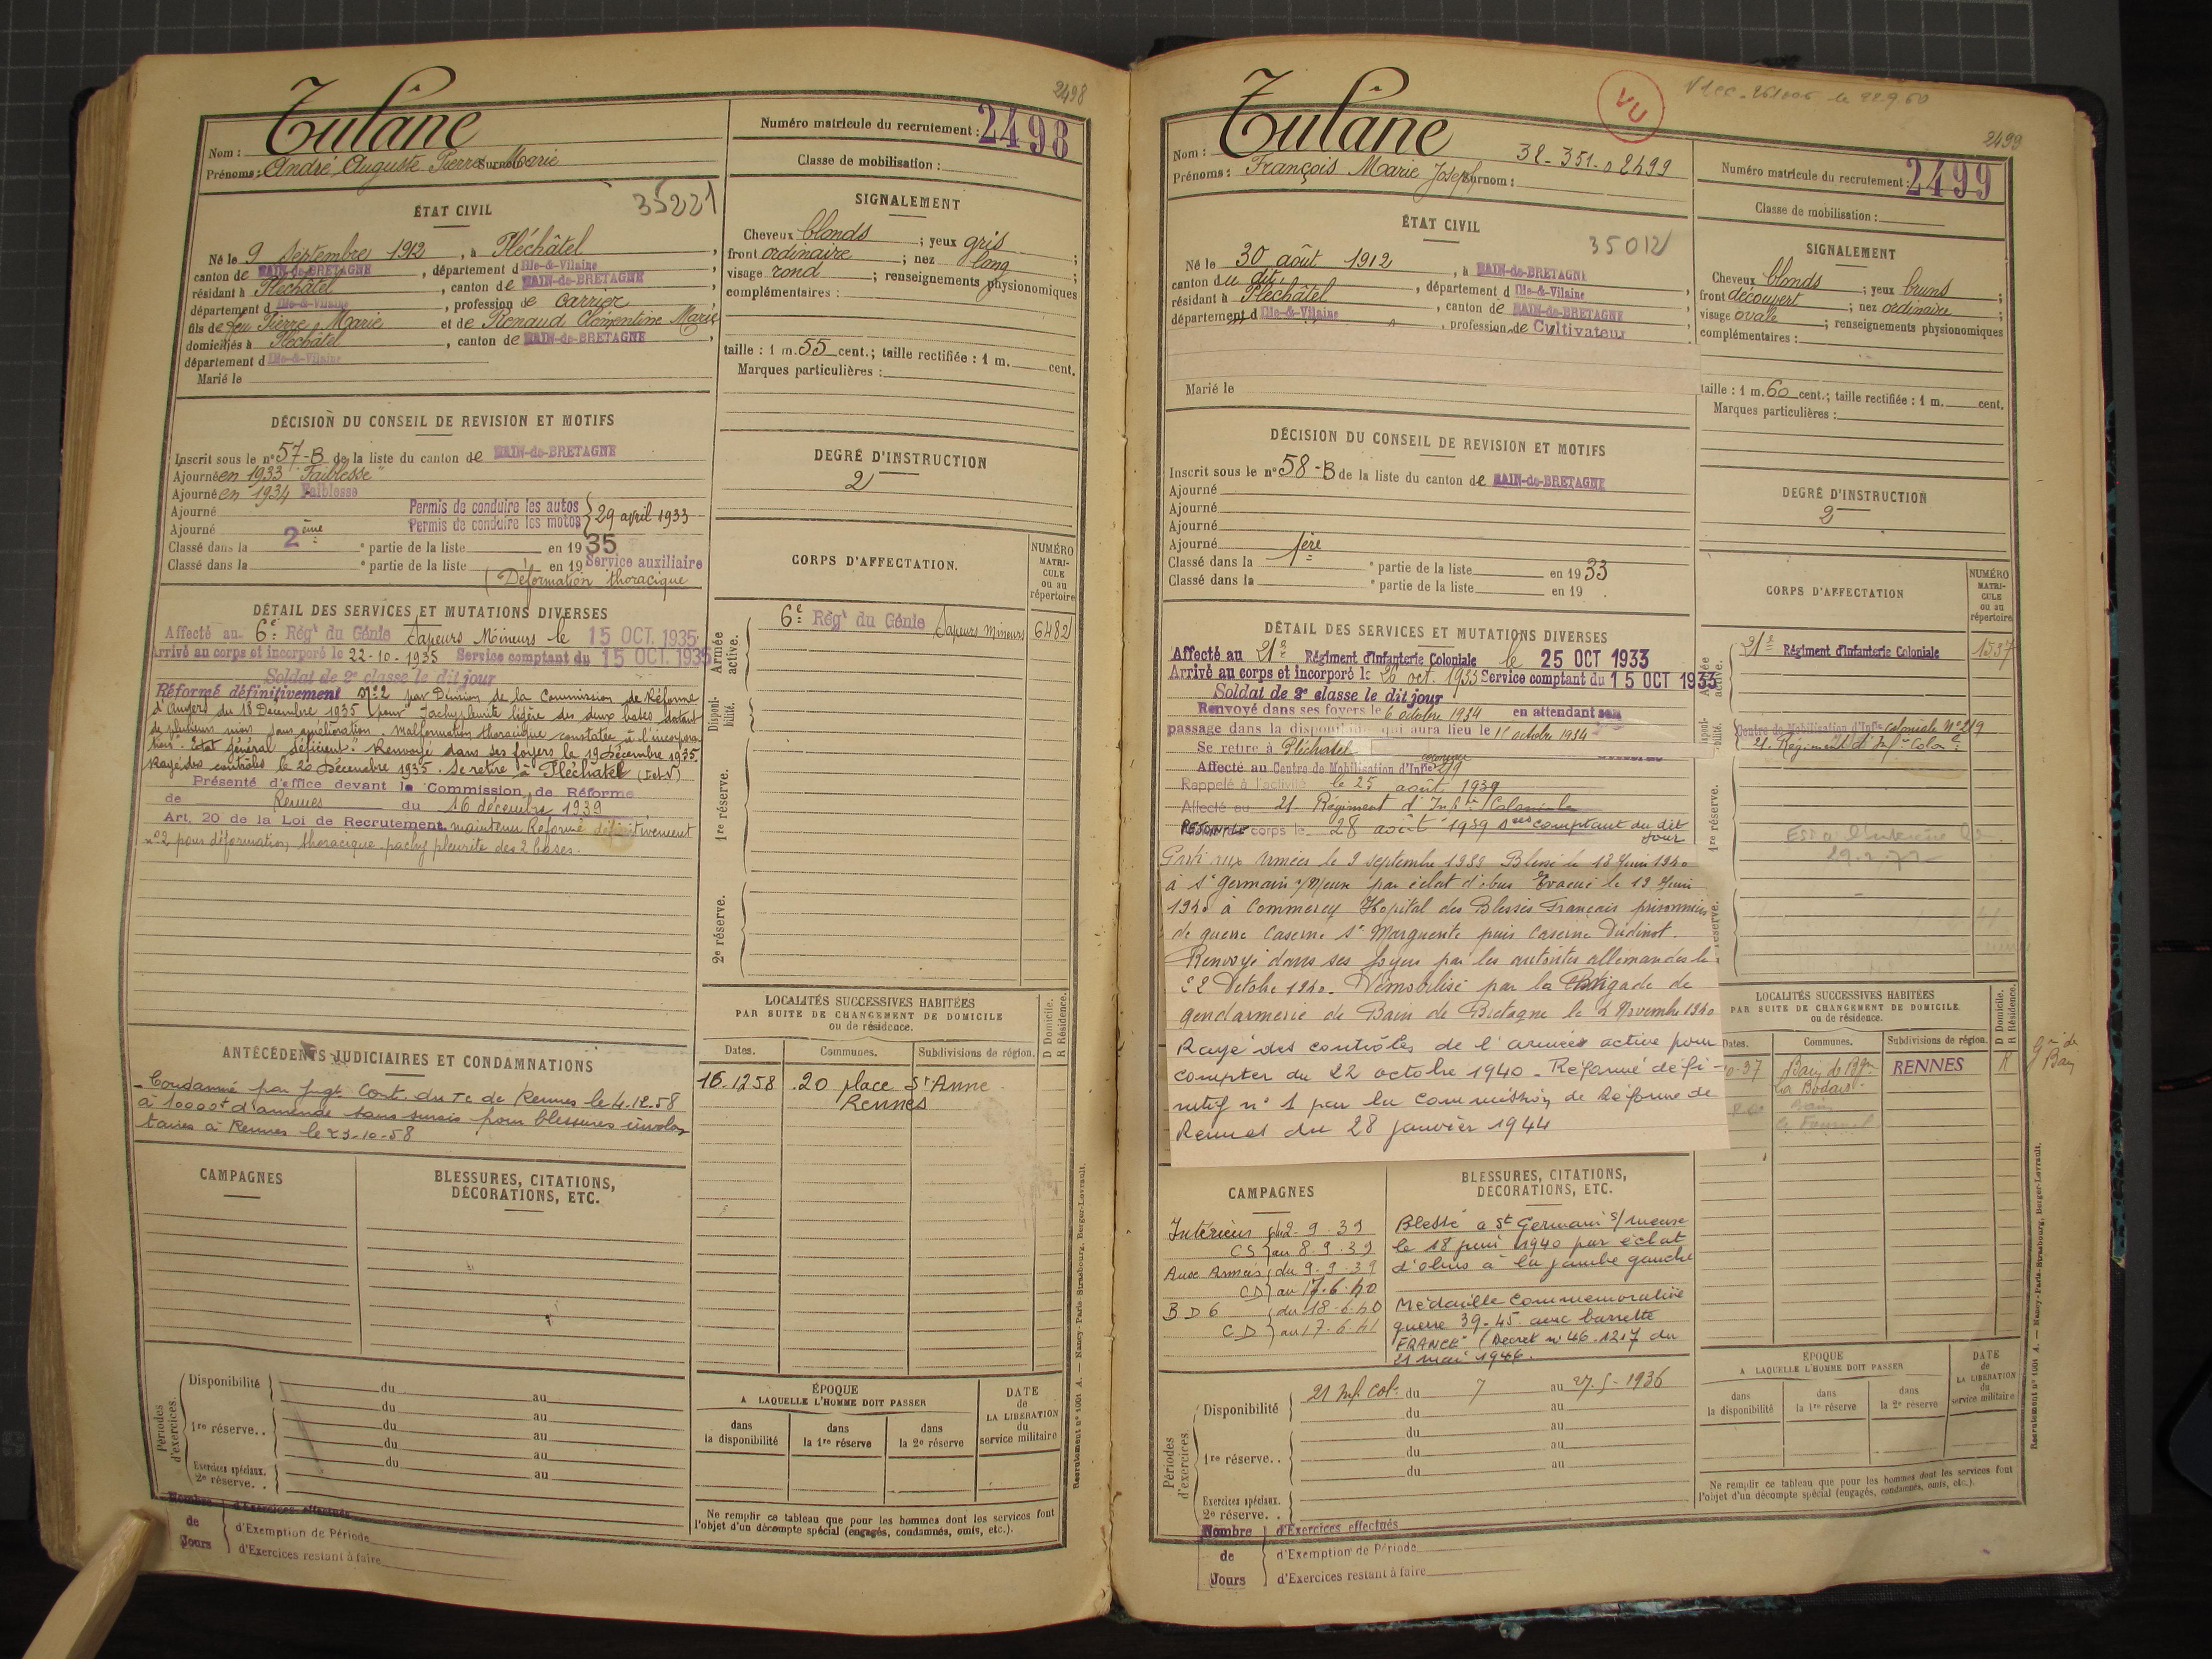 2498
Tulane
Nom :
Prénoms : André Auguste Pierre Marie Surnom
Numéro matricule du recrutement : 2498
Classe de mobilisation :
35221
ÉTAT CIVIL
Né le 9 Septembre 1912, à Pléchâtel,
canton de BAIN-de-BRETAGNE, département d Ille-&-Vilaine
résidant à Pléchâtel, canton de BAIN-de-BRETAGNE,
département d Ille-&-Vilaine, profession de carrier
fils de feu Pierre Marie et de Renaud Clémentine Marie
domiciliés à Pléchâtel, canton de BAIN-de-BRETAGNE,
département d Ille-&-Vilaine
Marié le
SIGNALEMENT
Cheveux blonds ; yeux gris
front ordinaire ; nez long ;
visage rond ; renseignements physionomiques
complémentaires :
taille : 1 m. 55 cent.; taille rectifiée : 1 m. cent.
Marques particulières :
DÉCISION DU CONSEIL DE REVISION ET MOTIFS
Inscrit sous le n° 57-B de la liste du canton de BAIN-de-BRETAGNE
Ajourné en 1933 "Faiblesse"
Ajourné en 1934 Faiblesse
Ajourné Permis de conduire les autos
Ajourné Permis de conduire les motos } 29 avril 1933
Classé dans la 2ème partie de la liste en 1935
Classé dans la partie de la liste en 19 Service auxiliaire
(Déformation thoracique
DEGRÉ D'INSTRUCTION
2
DÉTAIL DES SERVICES ET MUTATIONS DIVERSES
Affecté au 6e Régt du Génie Sapeurs Mineurs le 15 OCT. 1935
Arrivé au corps et incorporé le 22-10-1935 Service comptant du 15 OCT. 1935
Soldat de 2e classe le dit jour
Réformé définitivement N°2 par Décision de la Commission de Réforme
d'Angers du 18 Décembre 1935 pour Pachypleurite légère des deux bases datant
de plusieurs mois sans amélioration. Malformation thoracique constatée à l'incorpora
tion. Etat général déficient". Renvoyé dans ses foyers le 19 Décembre 1935.
Rayé des contrôles le 20 Décembre 1935. Se retire à Pléchâtel (I-et-V)
Présenté d'office devant la Commission de Réforme
de Rennes du 16 décembre 1939
Art. 20 de la Loi de Recrutement maintenu Réformé définitivement
n°2 pour déformation thoracique pachypleurite des 2 bases.
CORPS D'AFFECTATION.
NUMÉRO
MATRI-
CULE
ou au
répertoire
Armée active.
6e Régt du Génie Sapeurs Mineurs 6482
Disponibilité.
1re réserve.
2e réserve.
LOCALITÉS SUCCESSIVES HABITÉES
PAR SUITE DE CHANGEMENT DE DOMICILE
ou de résidence.
Dates. Communes. Subdivisions de région. D Domicile. R Résidence.
16.12.58 20 place St Anne
Rennes
ANTÉCÉDENTS JUDICIAIRES ET CONDAMNATIONS
- Condamné par jugt Cont. du Tc de Rennes le 4.12.58
à 10000f d'amende sans sursis pour blessures involon
taires à Rennes le 23-10-58
CAMPAGNES
BLESSURES, CITATIONS,
DÉCORATIONS, ETC.
Périodes d'exercices.
Disponibilité du au
du au
1re réserve.. du au
du au
Exercices spéciaux. du au
2e réserve. .
ÉPOQUE
A LAQUELLE L'HOMME DOIT PASSER
dans la disponibilité
dans la 1re réserve
dans la 2e réserve
DATE
de
LA LIBÉRATION
du
service militaire
Ne remplir ce tableau que pour les hommes dont les services font
l'objet d'un décompte spécial (engagés, condamnés, omis, etc.).
Nombre d'Exercices effectués
de d'Exemption de Période
Jours d'Exercices restant à faire
Recrutement n° 1001 A. — Nancy-Paris-Strasbourg, Berger-Levrault.
VU
2499
Tulane
Nom :
Prénoms : François Marie Joseph Surnom :
38-351-02499
Numéro matricule du recrutement : 2499
Classe de mobilisation :
35012
ÉTAT CIVIL
Né le 30 août 1912, à BAIN-de-BRETAGNE
canton du dit, département d Ille-&-Vilaine
résidant à Pléchâtel, canton de BAIN-de-BRETAGNE
département d Ille-&-Vilaine, profession de Cultivateur
Marié le
SIGNALEMENT
Cheveux blonds ; yeux bruns
front découvert ; nez ordinaire ;
visage ovale ; renseignements physionomiques
complémentaires :
taille : 1 m. 60 cent.; taille rectifiée : 1 m. cent.
Marques particulières :
DÉCISION DU CONSEIL DE REVISION ET MOTIFS
Inscrit sous le n° 58-B de la liste du canton de BAIN-de-BRETAGNE
Ajourné
Ajourné
Ajourné
Ajourné
Classé dans la 1ère partie de la liste en 1933
Classé dans la partie de la liste en 19
DEGRÉ D'INSTRUCTION
2
DÉTAIL DES SERVICES ET MUTATIONS DIVERSES
Affecté au 21e Régiment d'Infanterie Coloniale le 25 OCT 1933
Arrivé au corps et incorporé le 26 oct. 1933 Service comptant du 15 OCT 1933
Soldat de 2e classe le dit jour
Renvoyé dans ses foyers le 6 octobre 1934 en attendant son
passage dans la disponibilité qui aura lieu le 15 octobre 1934
Se retire à Pléchatel
Affecté au Centre de Mobilisation d'Infie coloniale 219
Rappelé à l'activité le 25 août 1939
Affecté au 21e Régiment d'Infie Coloniale
corps le 28 août 1939 Ses comptant du dit
jour
Parti aux Armées le 9 septembre 1939 Blessé le 18 Juin 1940
à St Germain s/Meuse par éclat d'obus Evacué le 19 Juin
1940 à Commercy Hopital des Blessés Français prisonniers
de guerre Caserne Ste Marguerite puis Caserne Oudinot.
Renvoyé dans ses foyers par les autorités allemandes le
22 Octobre 1940. Démobilisé par la Brigade de
gendarmerie de Bain de Bretagne le 2 Novembre 1940
Rayé des contrôles de l'armée active pour
compter du 22 octobre 1940 - Réformé défi-
nitif n° 1 par la Commission de Réforme de
Rennes du 28 janvier 1944
CORPS D'AFFECTATION
NUMÉRO
MATRI-
CULE
ou au
répertoire
21e Régiment d'Infanterie Coloniale 1537
Centre de Mobilisation d'Infie coloniale n°219
21e Régiment d'Infie Colonle
1re réserve.
LOCALITÉS SUCCESSIVES HABITÉES
PAR SUITE DE CHANGEMENT DE DOMICILE
ou de résidence.
Dates. Communes. Subdivisions de région. D Domicile. R Résidence.
Bain de Bgne RENNES R
La Bodais
CAMPAGNES
Intérieur du 2-9-39
CS au 8.9.39
Aux Armées du 9-9-39
CD au 17.6.40
BD6 du 18-6-40
CD au 17.6.41
BLESSURES, CITATIONS,
DÉCORATIONS, ETC.
Blessé à St Germain s/meuse
le 18 juin 1940 par éclat
d'obus à la jambe gauche
Médaille Commémorative
guerre 39-45 avec barrette
"FRANCE" (Décret n° 46.1217 du
21 mai 1946.
Périodes d'exercices
Disponibilité 21 Inf. Cole du 7 au 27-5-1936
du au
du au
1re réserve. . du au
du au
Exercices spéciaux.
2e réserve. .
ÉPOQUE
A LAQUELLE L'HOMME DOIT PASSER
dans la disponibilité
dans la 1re réserve
dans la 2e réserve
DATE
de
LA LIBÉRATION
du
service militaire
Ne remplir ce tableau que pour les hommes dont les services font
l'objet d'un décompte spécial (engagés, condamnés, omis, etc.).
Nombre d'Exercices effectués
de d'Exemption de Période
Jours d'Exercices restant à faire
Recrutement n° 1001 A. — Nancy-Paris-Strasbourg, Berger-Levrault.